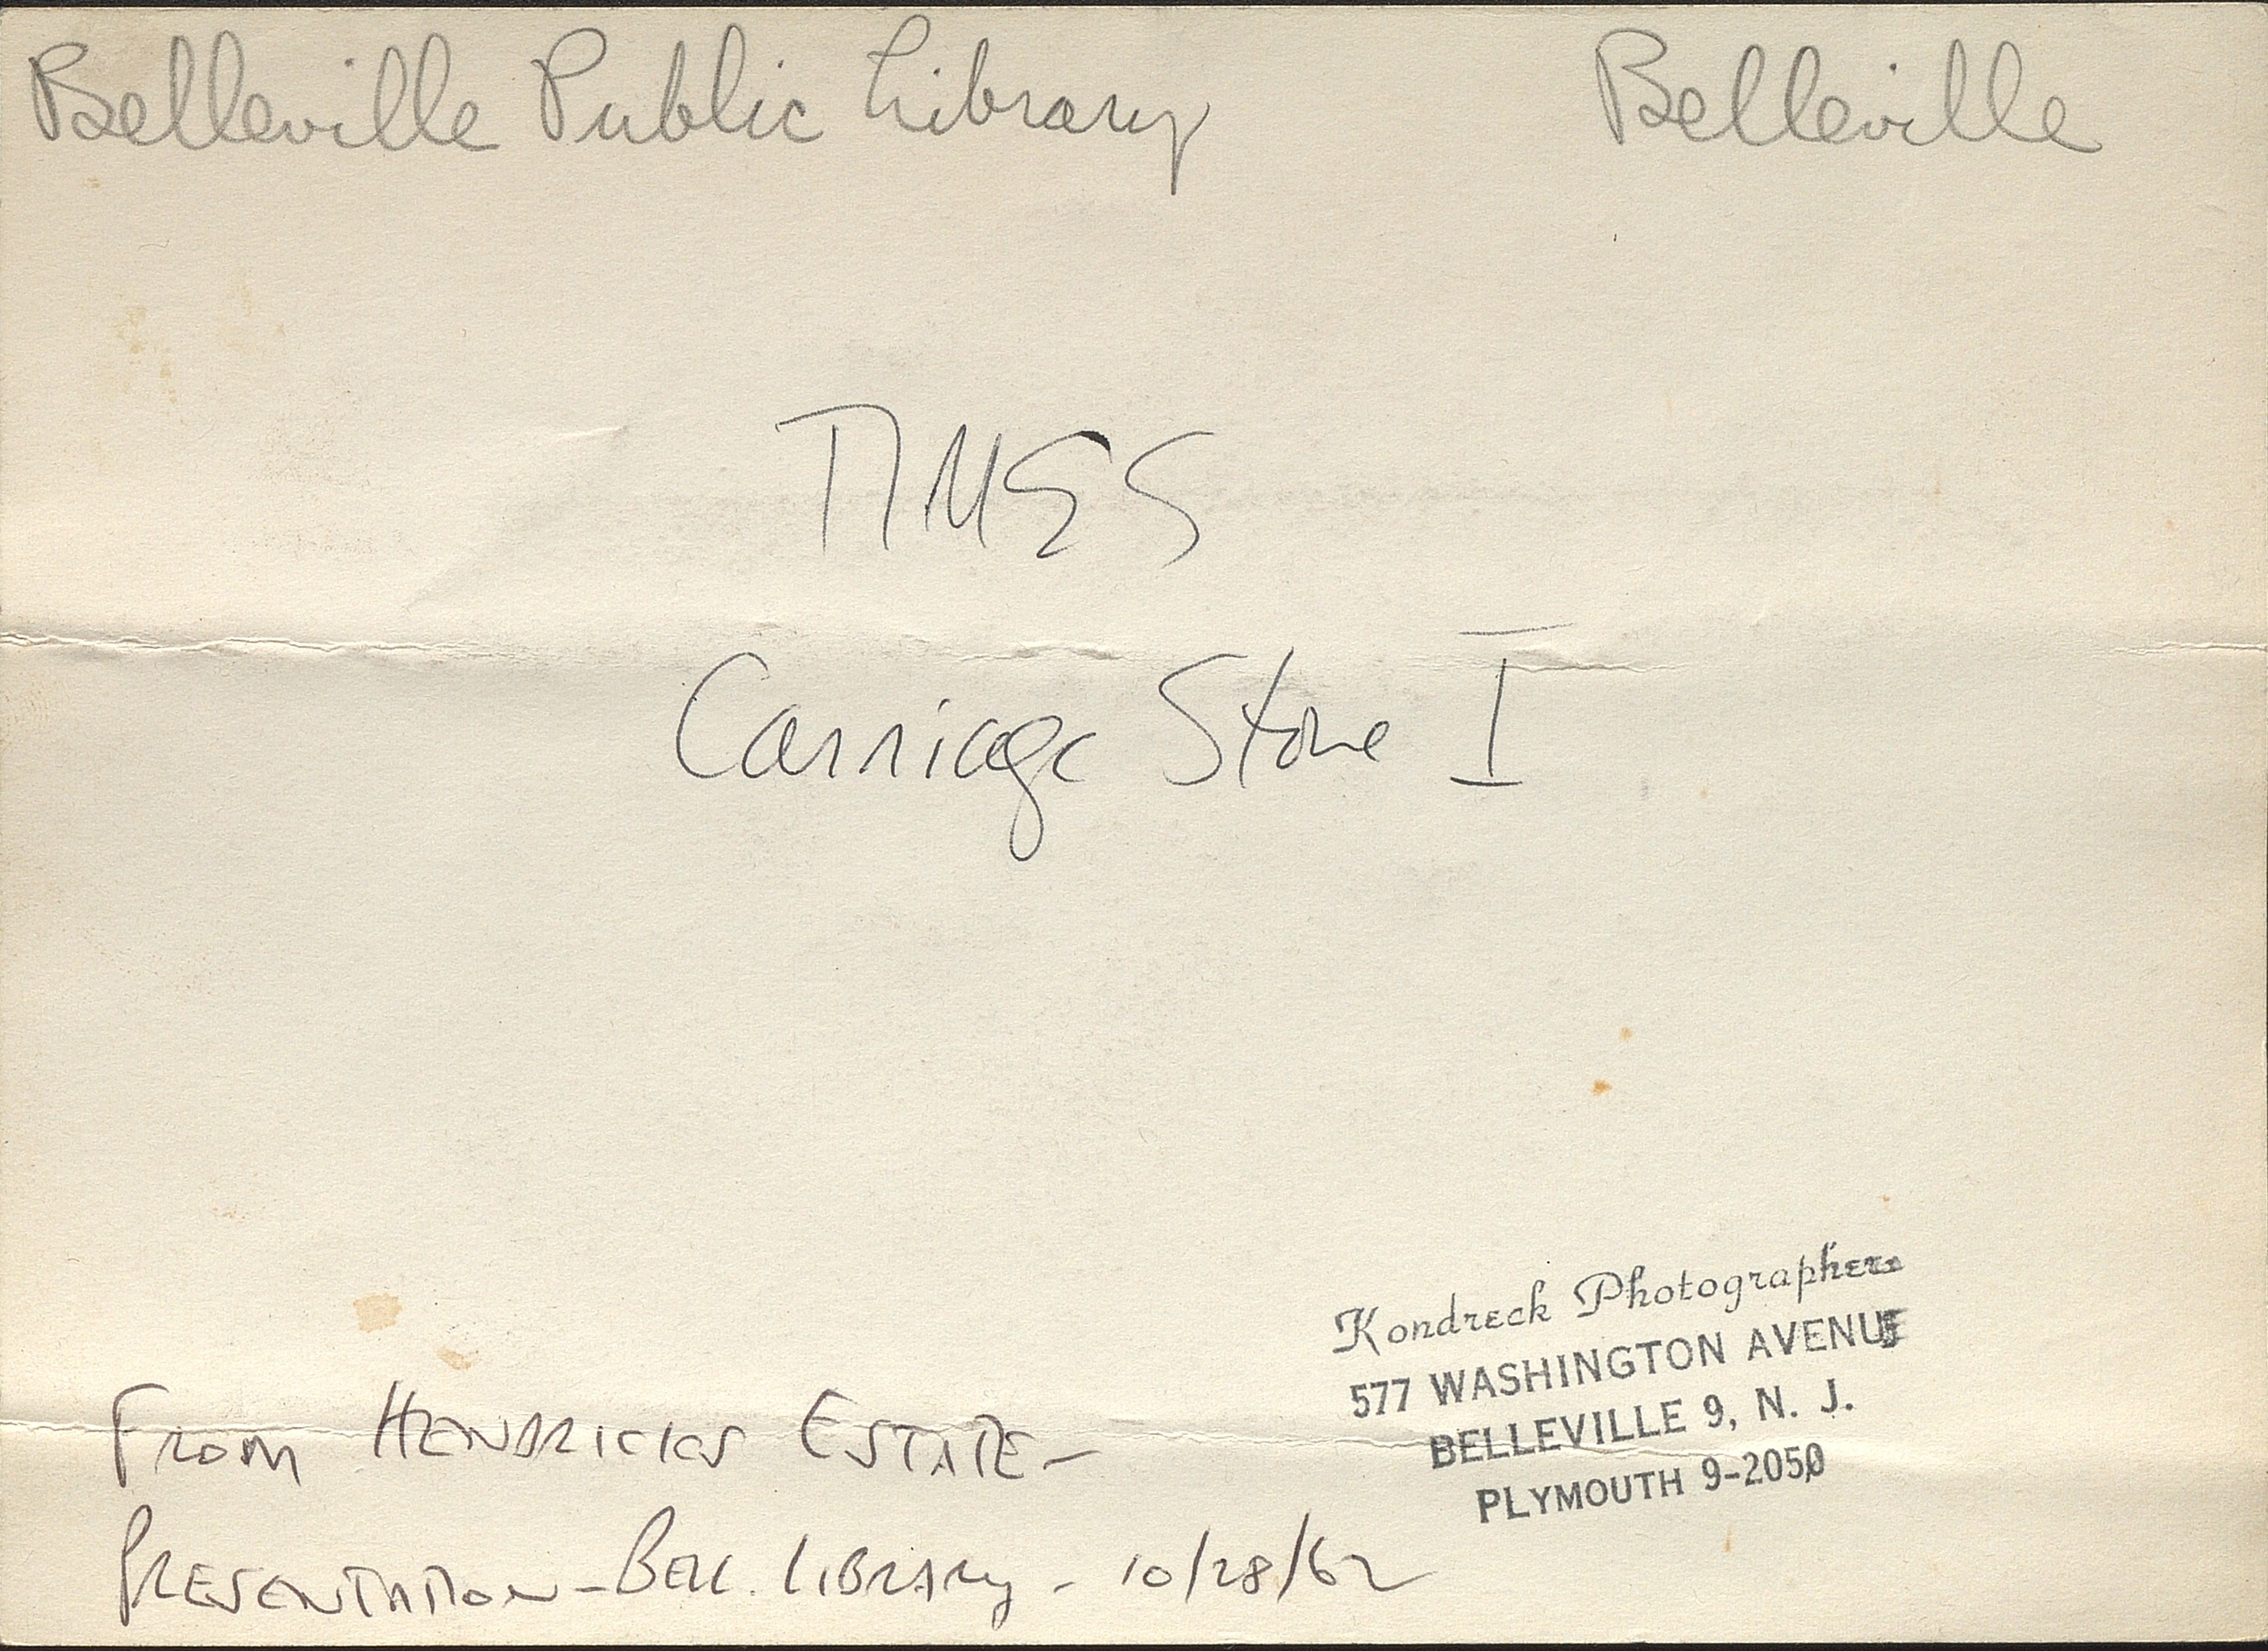 Belleville Public Library Belleville
TIMES
Carriage Stone I
Kondreck Photographers
577 WASHINGTON AVENUE
BELLEVILLE 9, N. J.
PLYMOUTH 9-2050
FROM HENDRICKS ESTATE-
PRESENTATION - BELL. LIBRARY - 10/28/62